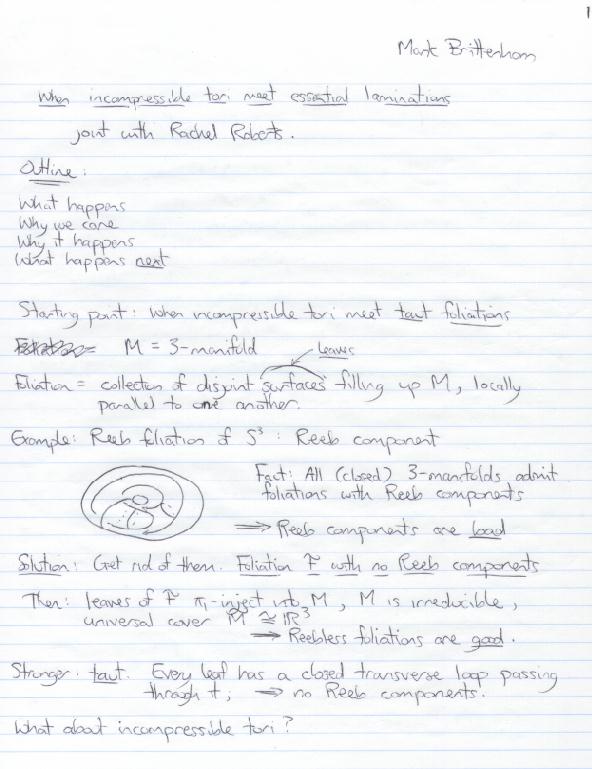 1
Mark Brittenham
When incompressible tori meet essential laminations
joint with Rachel Roberts.
Outline:
What happens
Why we care
Why it happens
What happens next
Starting point: When incompressible tori meet taut foliations
M = 3-manifold
leaves
Foliation = collection of disjoint surfaces filling up M, locally
parallel to one another.
Example: Reeb foliation of S³ : Reeb component
Fact: All (closed) 3-manifolds admit
foliations with Reeb components
⟹ Reeb components are bad
Solution: Get rid of them. Foliation F with no Reeb components
Then: leaves of F π₁-inject into M, M is irreducible,
universal cover M̃ ≅ ℝ³
⟹ Reebless foliations are good.
Stronger: taut. Every leaf has a closed transverse loop passing
through it; ⟹ no Reeb components.
What about incompressible tori?